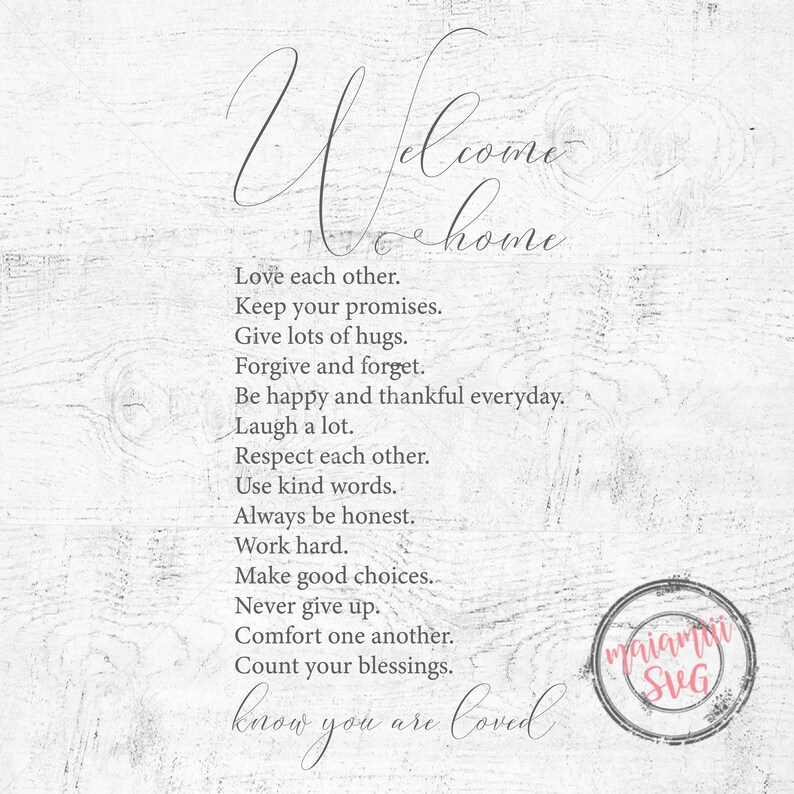 Welcome
home
Love each other.
Keep your promises.
Give lots of hugs.
Forgive and forget.
Be happy and thankful everyday.
Laugh a lot.
Respect each other.
Use kind words.
Always be honest.
Work hard.
Make good choices.
Never give up.
Comfort one another.
Count your blessings.
know you are loved
maiamiii
SVG